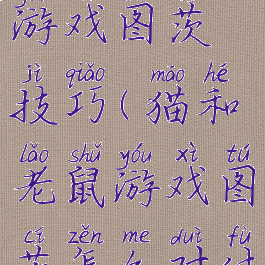 游戏图茨
jì qiǎo māo hé
技巧(猫和
lǎo shǔ yóu xì tú
老鼠游戏图
cí zěn me duì fù
茨怎么对付